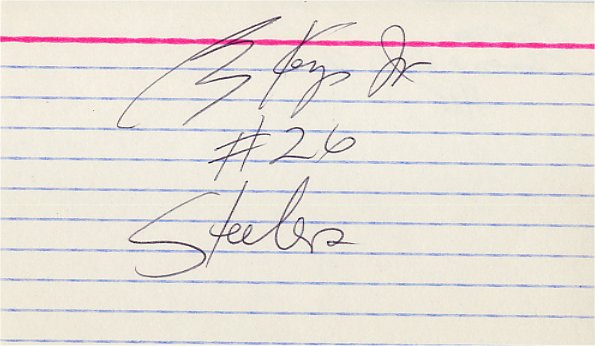 Keys Jr
#26
Steelers